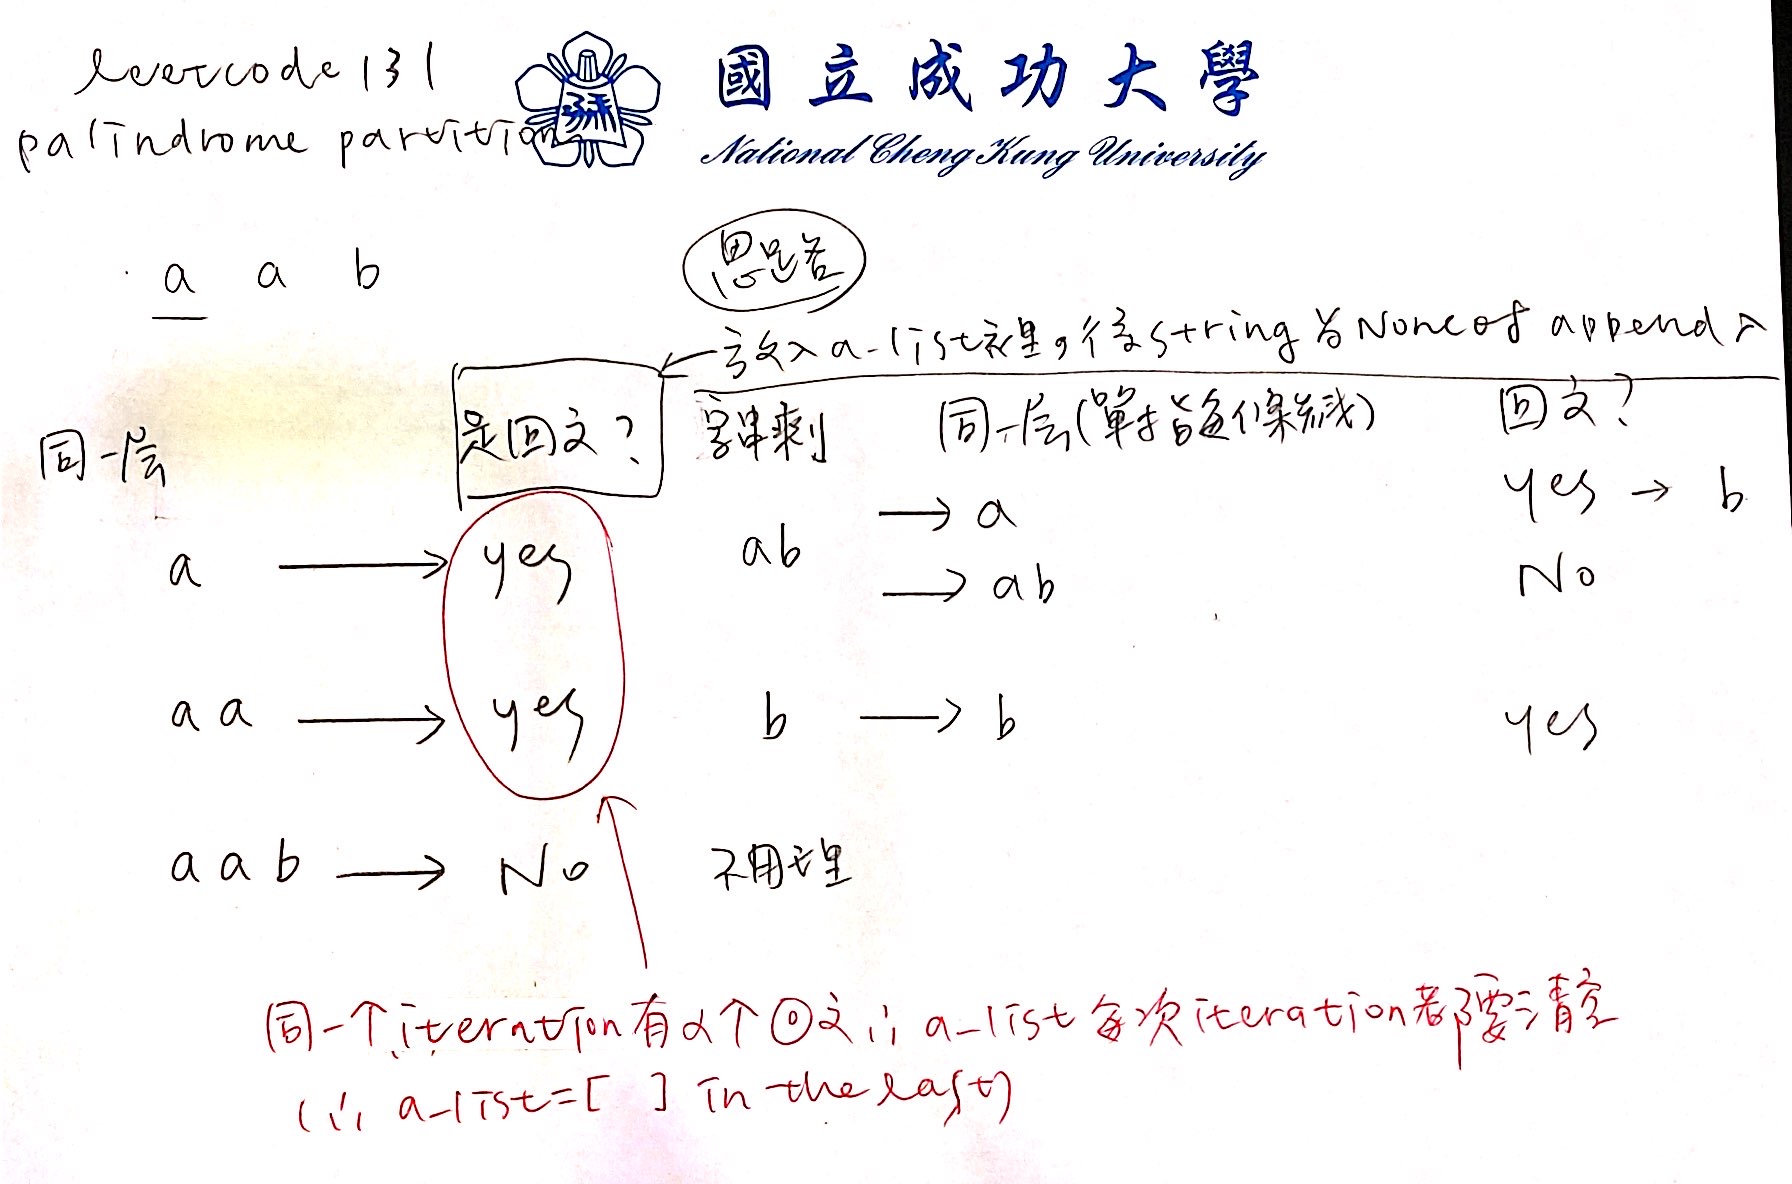 leetcode 131
palindrome partition
國立成功大學
National Cheng Kung University
a a b
思路
放入a-list裡,後string為None of append入
同一层
是回文?
字串剩
同一层(單指這條線)
回文?
a → yes
ab
→ a
yes → b
→ ab
No
aa → yes
b → b
yes
aab → No
不用理
同一个iteration有2个回文∴ a-list每次iteration都要清空
(∴ a-list=[ ] in the last)